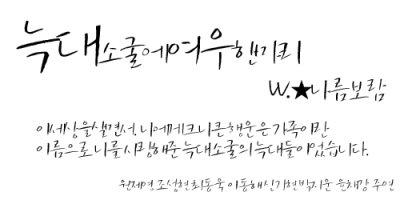 늑대소굴에여우한마리
W.★나름보람
이세상을살면서, 나에게크나큰행운은가족이란
이름으로나를시랑해준늑대소굴의늑대들이었습니다.
원제연 조성현 최동욱 이동해 신기현 박지운 윤채강 주연